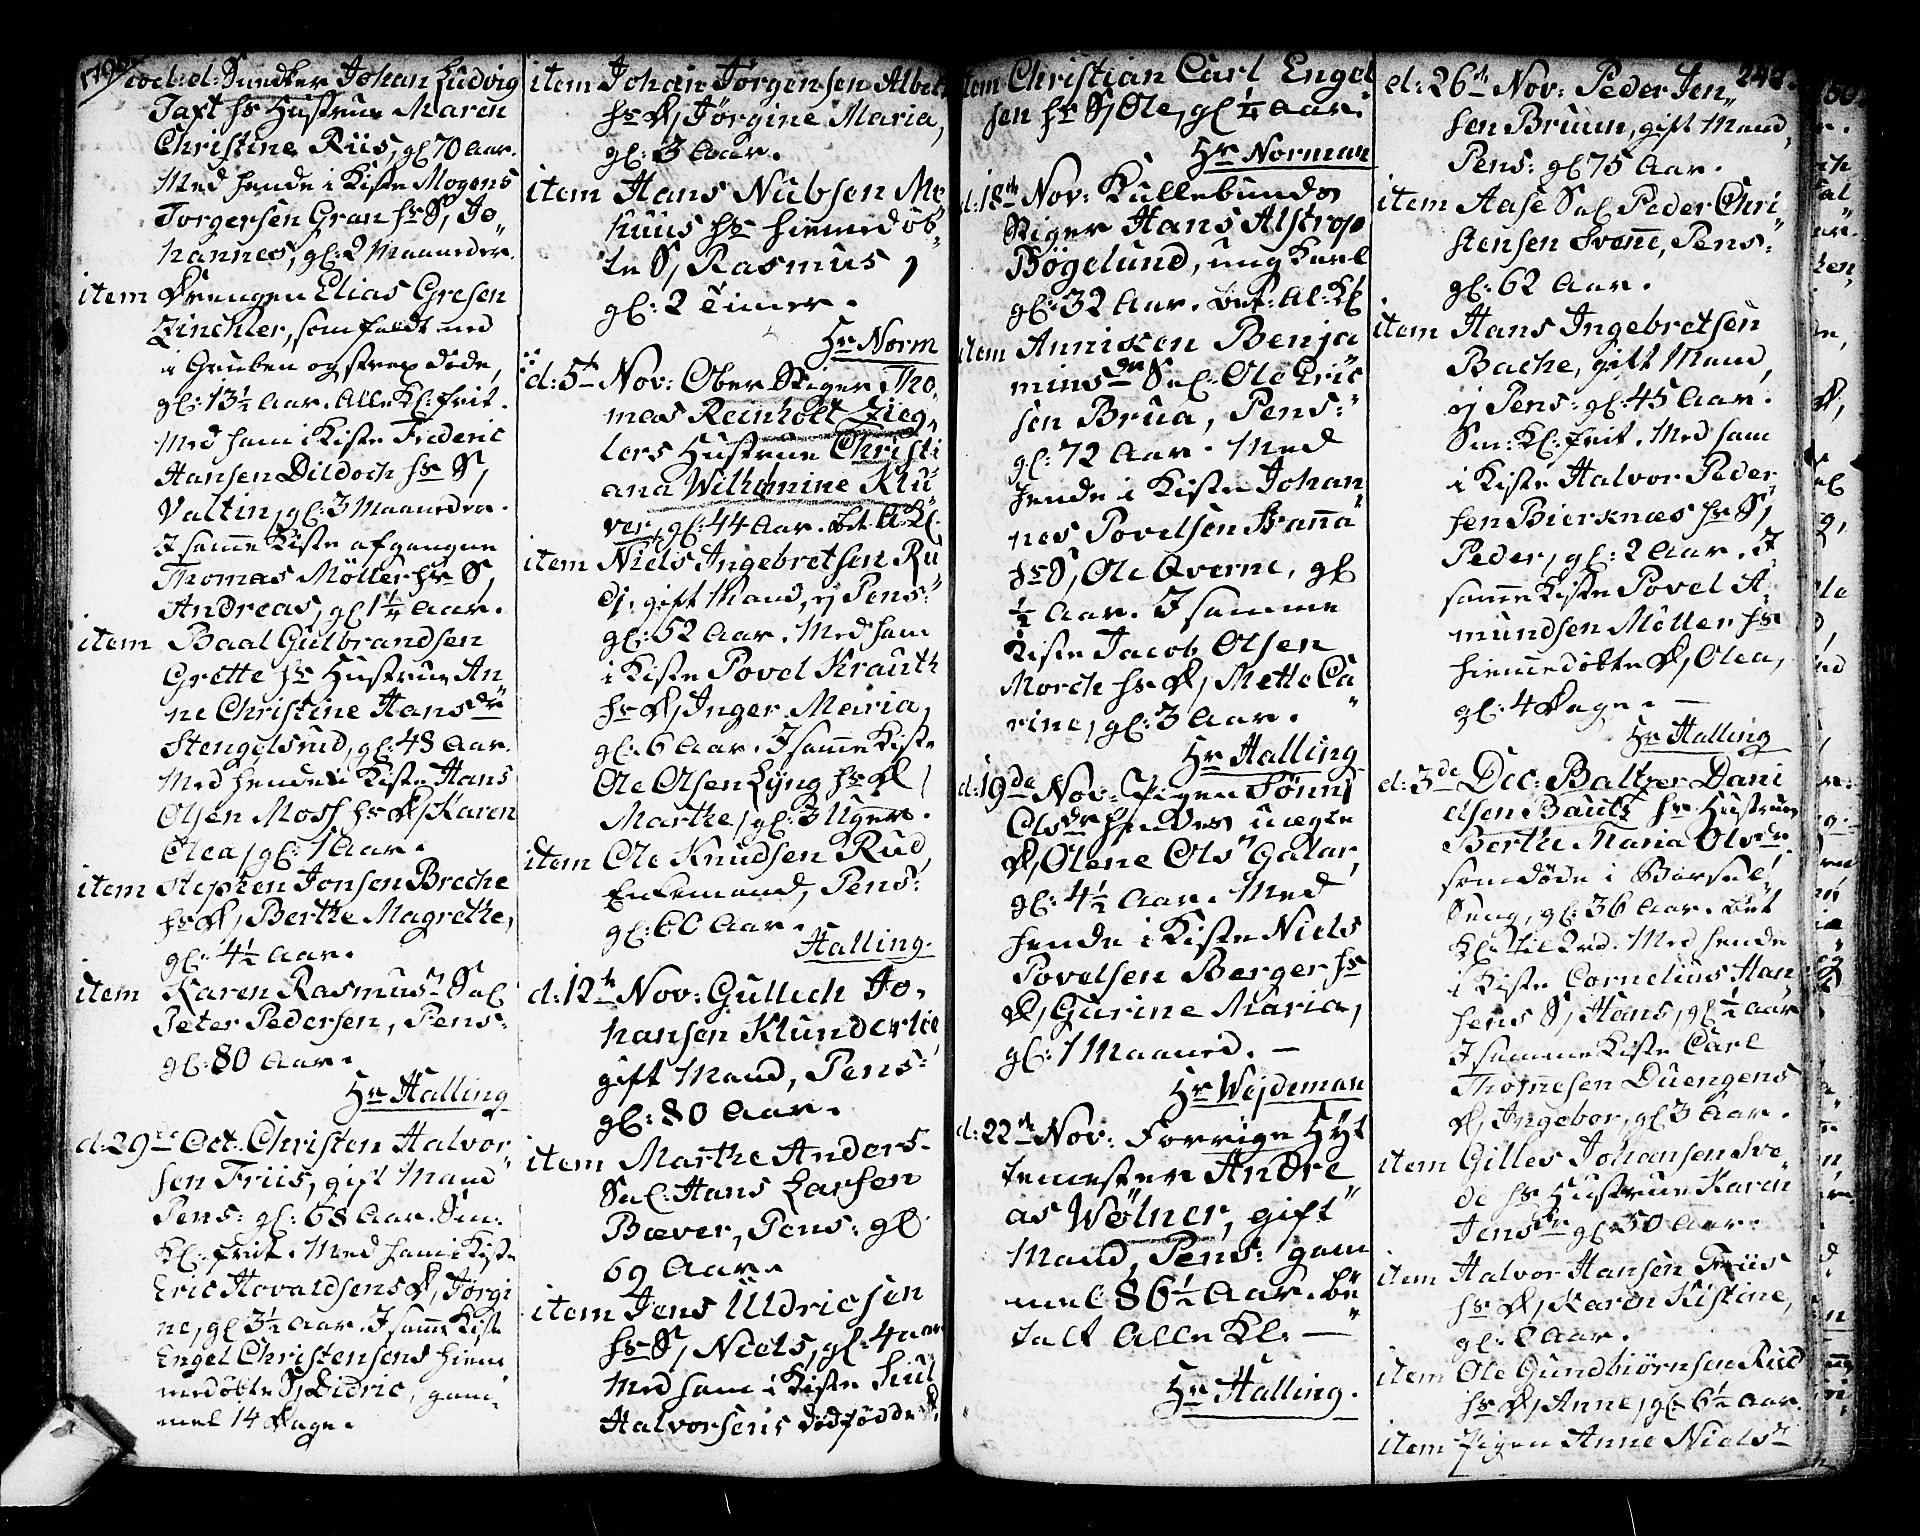 Johan Ludvig
Taft hs Hustrue Maren
Christine Riis, gl: 70 Aar.
Med hende i Kiste Mogens
Torgersen Gran hs S, Jo„
hannes, gl: 2 Maaneder.
item Drengen Elias Gresen
Zinchler, som faldt ned
i Gruben og strax døde,
gl: 13½ Aar. Alle Kl: frit.
Med ham i Kiste Frederic
Hansen Dildoch hs S,
Valtin, gl: 3 Maaneder.
I samme Kiste afgangne
Thomas Möller hs S,
Andreas, gl: 1¼ Aar.
item Baal Gulbrandsen
Grette hs Hustrue An„
ne Christine Hansdr
Stengelsrud, gl: 48 Aar.
Med hende i Kiste Hans
Olsen Moss hs D, Karen
Olea, gl: 1 Aar.
item Stephen Jonsen Breche
hs D, Berthe Magrethe,
gl: 4½ Aar.
item Karen Rasmusd Sal
Peter Pedersen, Pens:
gl: 80 Aar.
Hr Halling
d: 29de Oct. Christen Halvor„
sen Friis, gift Mand
Pens: gl: 68 Aar. Sm:
Kl: frit. Med ham i Kiste
Eric Hovaldsens D, Jørgi
ne, gl: 3½ Aar. I samme Kiste
Engel Christensens hiem
medøbte S, Didric, gam„
mel 14 Dage.
item Johan Jørgensen
hs D, Jørgine Maria,
gl: 3 Aar.
item Hans Nubsen Me
huus hs hiemedøb„
te S, Rasmus,
gl: 2 Timer.
Hr Norm
d: 5te Nov: Ober Stiger Tho„
mas Reinholt Zieg„
lers Hustrue Christi
ana Wilhelmine Klu„
ver, gl: 44 Aar. bet. A. Kl.
item Niels Ingebretsen Ru
di, gift Mand, ej Pens:
gl: 52 Aar. Med ham
i Kiste Povel Krauth
hs D, Inger Maria,
gl: 6 Aar. I samme Kiste
Ole Olsen Lÿng hs D,
Marthe, gl: 3 Uger.
item Ole Knudsen Rud,
Enkemand, Pens:
gl: 60 Aar.
Halling.
d: 12te Nov: Gullich Jo„
hansen Klunderlie
gift Mand, Pens:
gl: 80 Aar.
item Marthe Anders
Sal: Hans Larsen
Bæver, Pens: gl
69 Aar.
item Jens Uldricsen
hs S, Niels, gl: 4 aar
Med ham i Kiste Juul
Halvorsens dødfødde D.
item Christian Carl Engel
sen hs S, Ole, gl ¼ Aar.
Hr Norman
d: 18te Nov: Kullebunds
Stiger Hans Alstrop
Bøgelund, ung Karl
gl: 32 Aar. bet: Al: Kl
item Annisken Benja
minsdr Sal. Ole Eric
sen Brua, Pens:
gl: 72 Aar. Med
hende i Kiste Johan
nes Povelsen Hanna
hs S, Ole Overne, gl
½ Aar. I samme
Kiste Jacob Olsen
Morch hs D, Mette Ca„
rine, gl: 3 Aar.
Hr Halling
d: 19de Nov: Pigen Tønni
Olsdr hendes uægte
D, Olene Olsd Galar,
gl: 4½ Aar. Med
hende i Kiste Niels
Povelsen Berger hs
D, Gurine Maria,
gl: 1 Maaned. —
Hr Wejdeman
d: 22de Nov: Forrige Hÿt
temester Andre
as Wölner, gift
Mand, Pens: gam
mel 86½ Aar. be„
talt Alle Kl. —
Hr Halling.
d: 26de Nov: Peder Jen„ 24
sen Bruun, gift Mand,
Pens: gl 75 Aar.
item Aase Sal Peder Chri
stensen Svene, Pens:
gl: 62 Aar.
item Hans Ingebretsen
Bache, gift Mand,
ej Pens: gl: 45 Aar.
Sm: Kl: frit. Med ham
i Kiste Halvor Peder
sen Bierknæs hs S,
Peder, gl: 2 Aar. I
samme Kiste Povel A„
mundsen Möller hs
hiemedøbte D, Olea,
gl: 4 Dage. —
Hr Halling
d: 3de Dec: Baltzer Dani
elsen Bautz hs Hustrue
Berthe Maria Olsdr
som døde i Barsel„
Seng, gl: 36 Aar. Bet
Kl: til Ord. Med hende
i Kiste Cornelius Han„
sens S, Hans, gl: ½ Aar
I samme Kiste Carl
Thommesen Duengens
D, Ingebor, gl 3 Aar.
item Gilles Johansen Sve„
de hs Hustrue Karen
Jensdr gl: 50 Aar.
item Halvor Hansen Friis
hs D, Karen Kistine,
gl: Aar.
item Ole Gundbiørnsen Rud
hs D, Anne, gl: 6½ Aar.
item Pigen Anne Nielsd